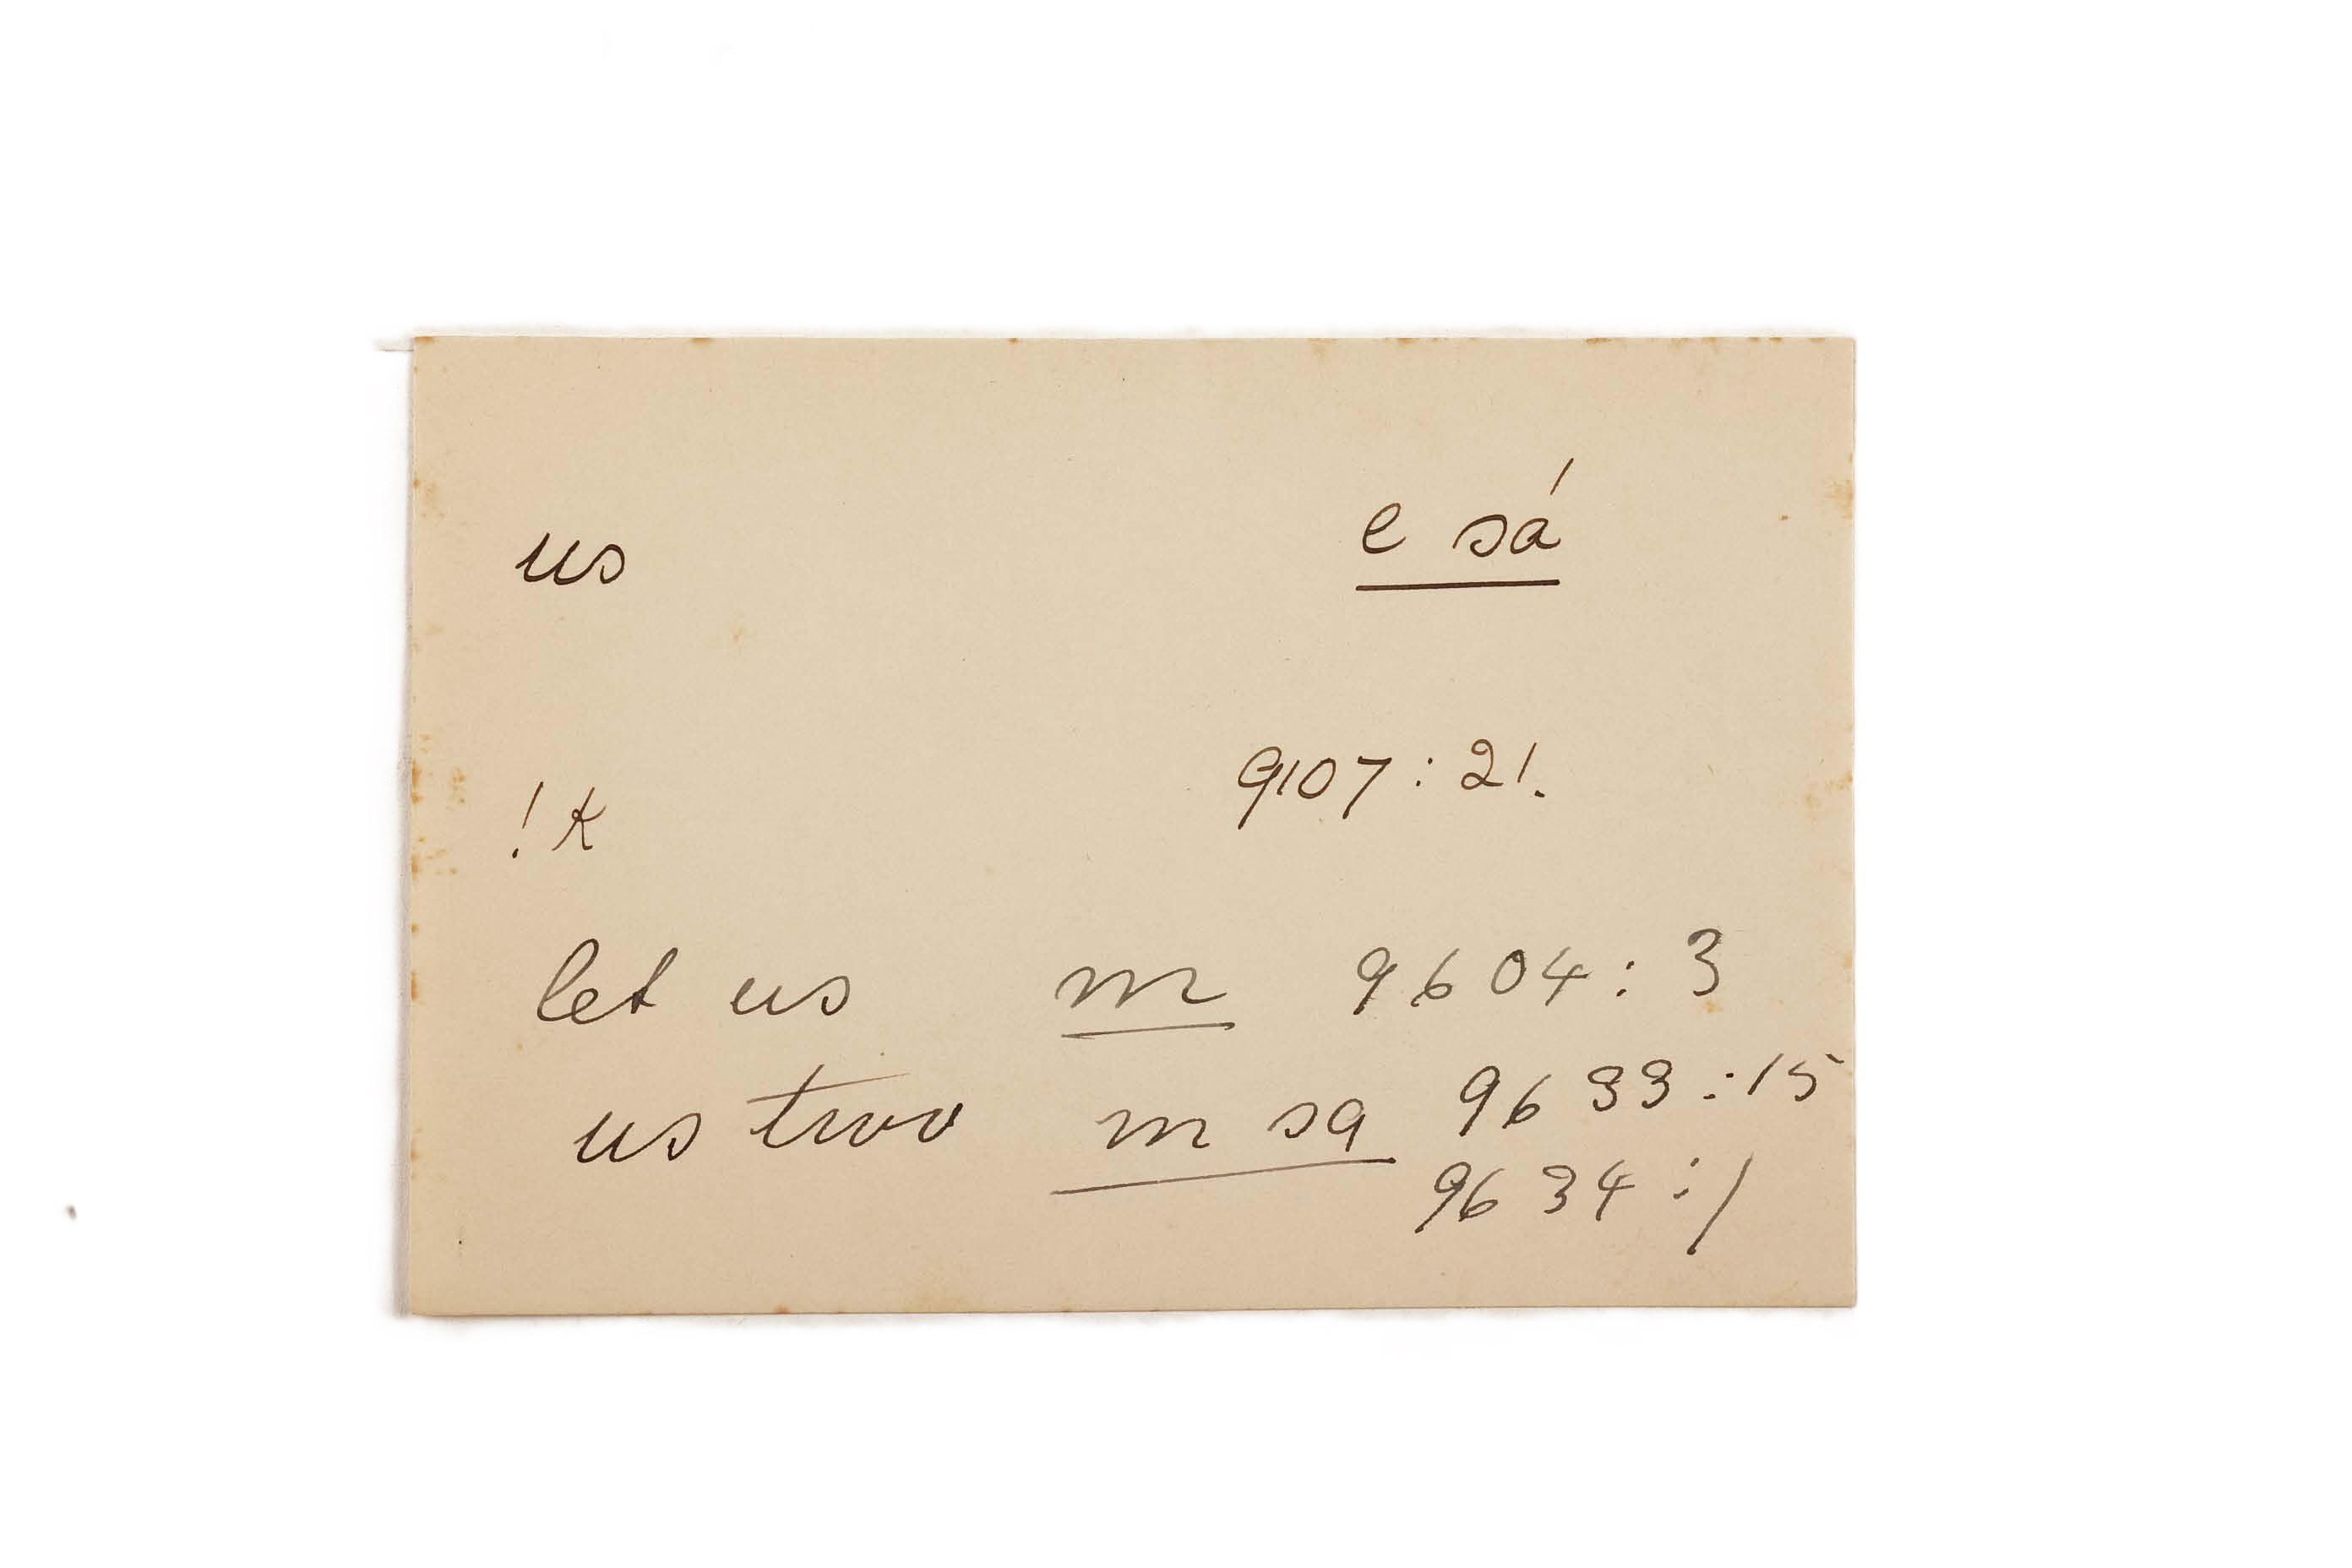 us e sá
9107 : 21.
! k
let us m 9604 : 3
us two m sa 9633 : 15
9634 : 1